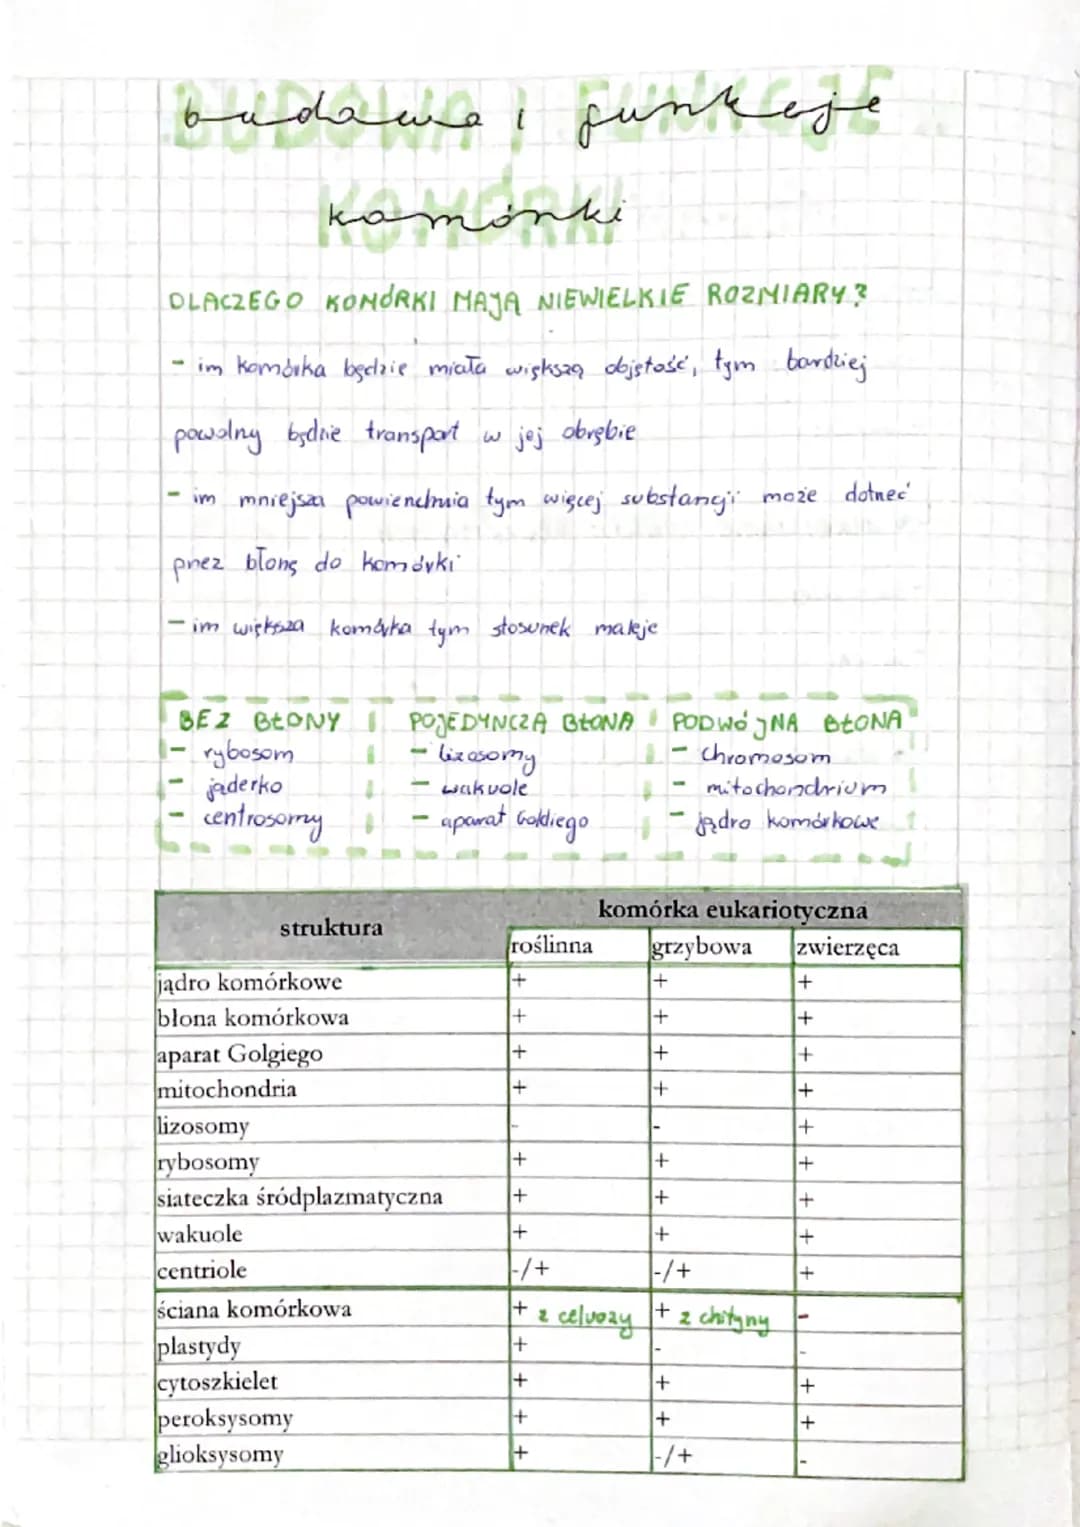 BUDOWA I FUNKCJE
budowa i funkcje
KOMÓRKI
komórki
DLACZEGO KOMÓRKI MAJĄ NIEWIELKIE ROZMIARY?
- im komórka będzie miała większą objętość, tym bardziej
powolny będzie transport w jej obrębie
- im mniejsza powierzchnia tym więcej substancji może dotrzeć
przez błonę do komórki
- im większa komórka tym stosunek maleje
BEZ BŁONY POJEDYNCZA BŁONA PODWÓJNA BŁONA
- rybosom - lizosomy - chromosom
- jąderko - wakuole - mitochondrium
- centrosomy - aparat Goldiego - jądro komórkowe
struktura komórka eukariotyczna
roślinna grzybowa zwierzęca
jądro komórkowe + + +
błona komórkowa + + +
aparat Golgiego + + +
mitochondria + + +
lizosomy - - +
rybosomy + + +
siateczka śródplazmatyczna + + +
wakuole + + +
centriole -/+ -/+ +
ściana komórkowa + z celuozy + z chityny -
plastydy + - -
cytoszkielet + + +
peroksysomy + + +
glioksysomy + -/+ -